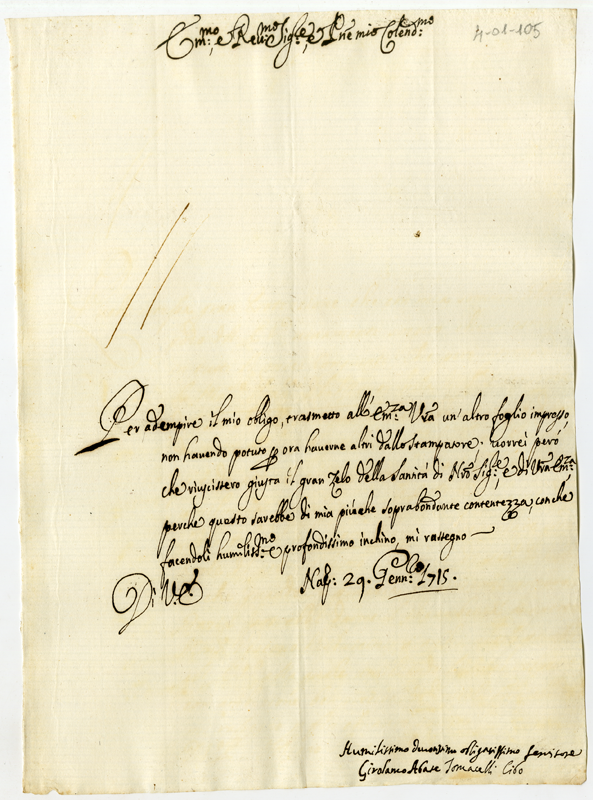 Em:mo e Rev:mo Sig:re e Pne mio Colend:mo
A-01-105
Per adempire il mio obligo, trasmetto all'Em:za Vra un'altro foglio impresso,
non havendo potuto p ora haverne altri dallo stampatore. Vorrei però
che riuscissero giusta il gran Zelo della Santità di Nro Sig:re e di Vra Em:za
perche questo sarebbe di mia più che soprabondante contentezza, con che
facendoli humiliss:mo e profondissimo inchino, mi rassegno
Di V. E.
Nap: 29. Genn:o 1715.
Humilissimo devotissimo obligatissimo servitore
Girolamo Abate Tomacelli Cibo